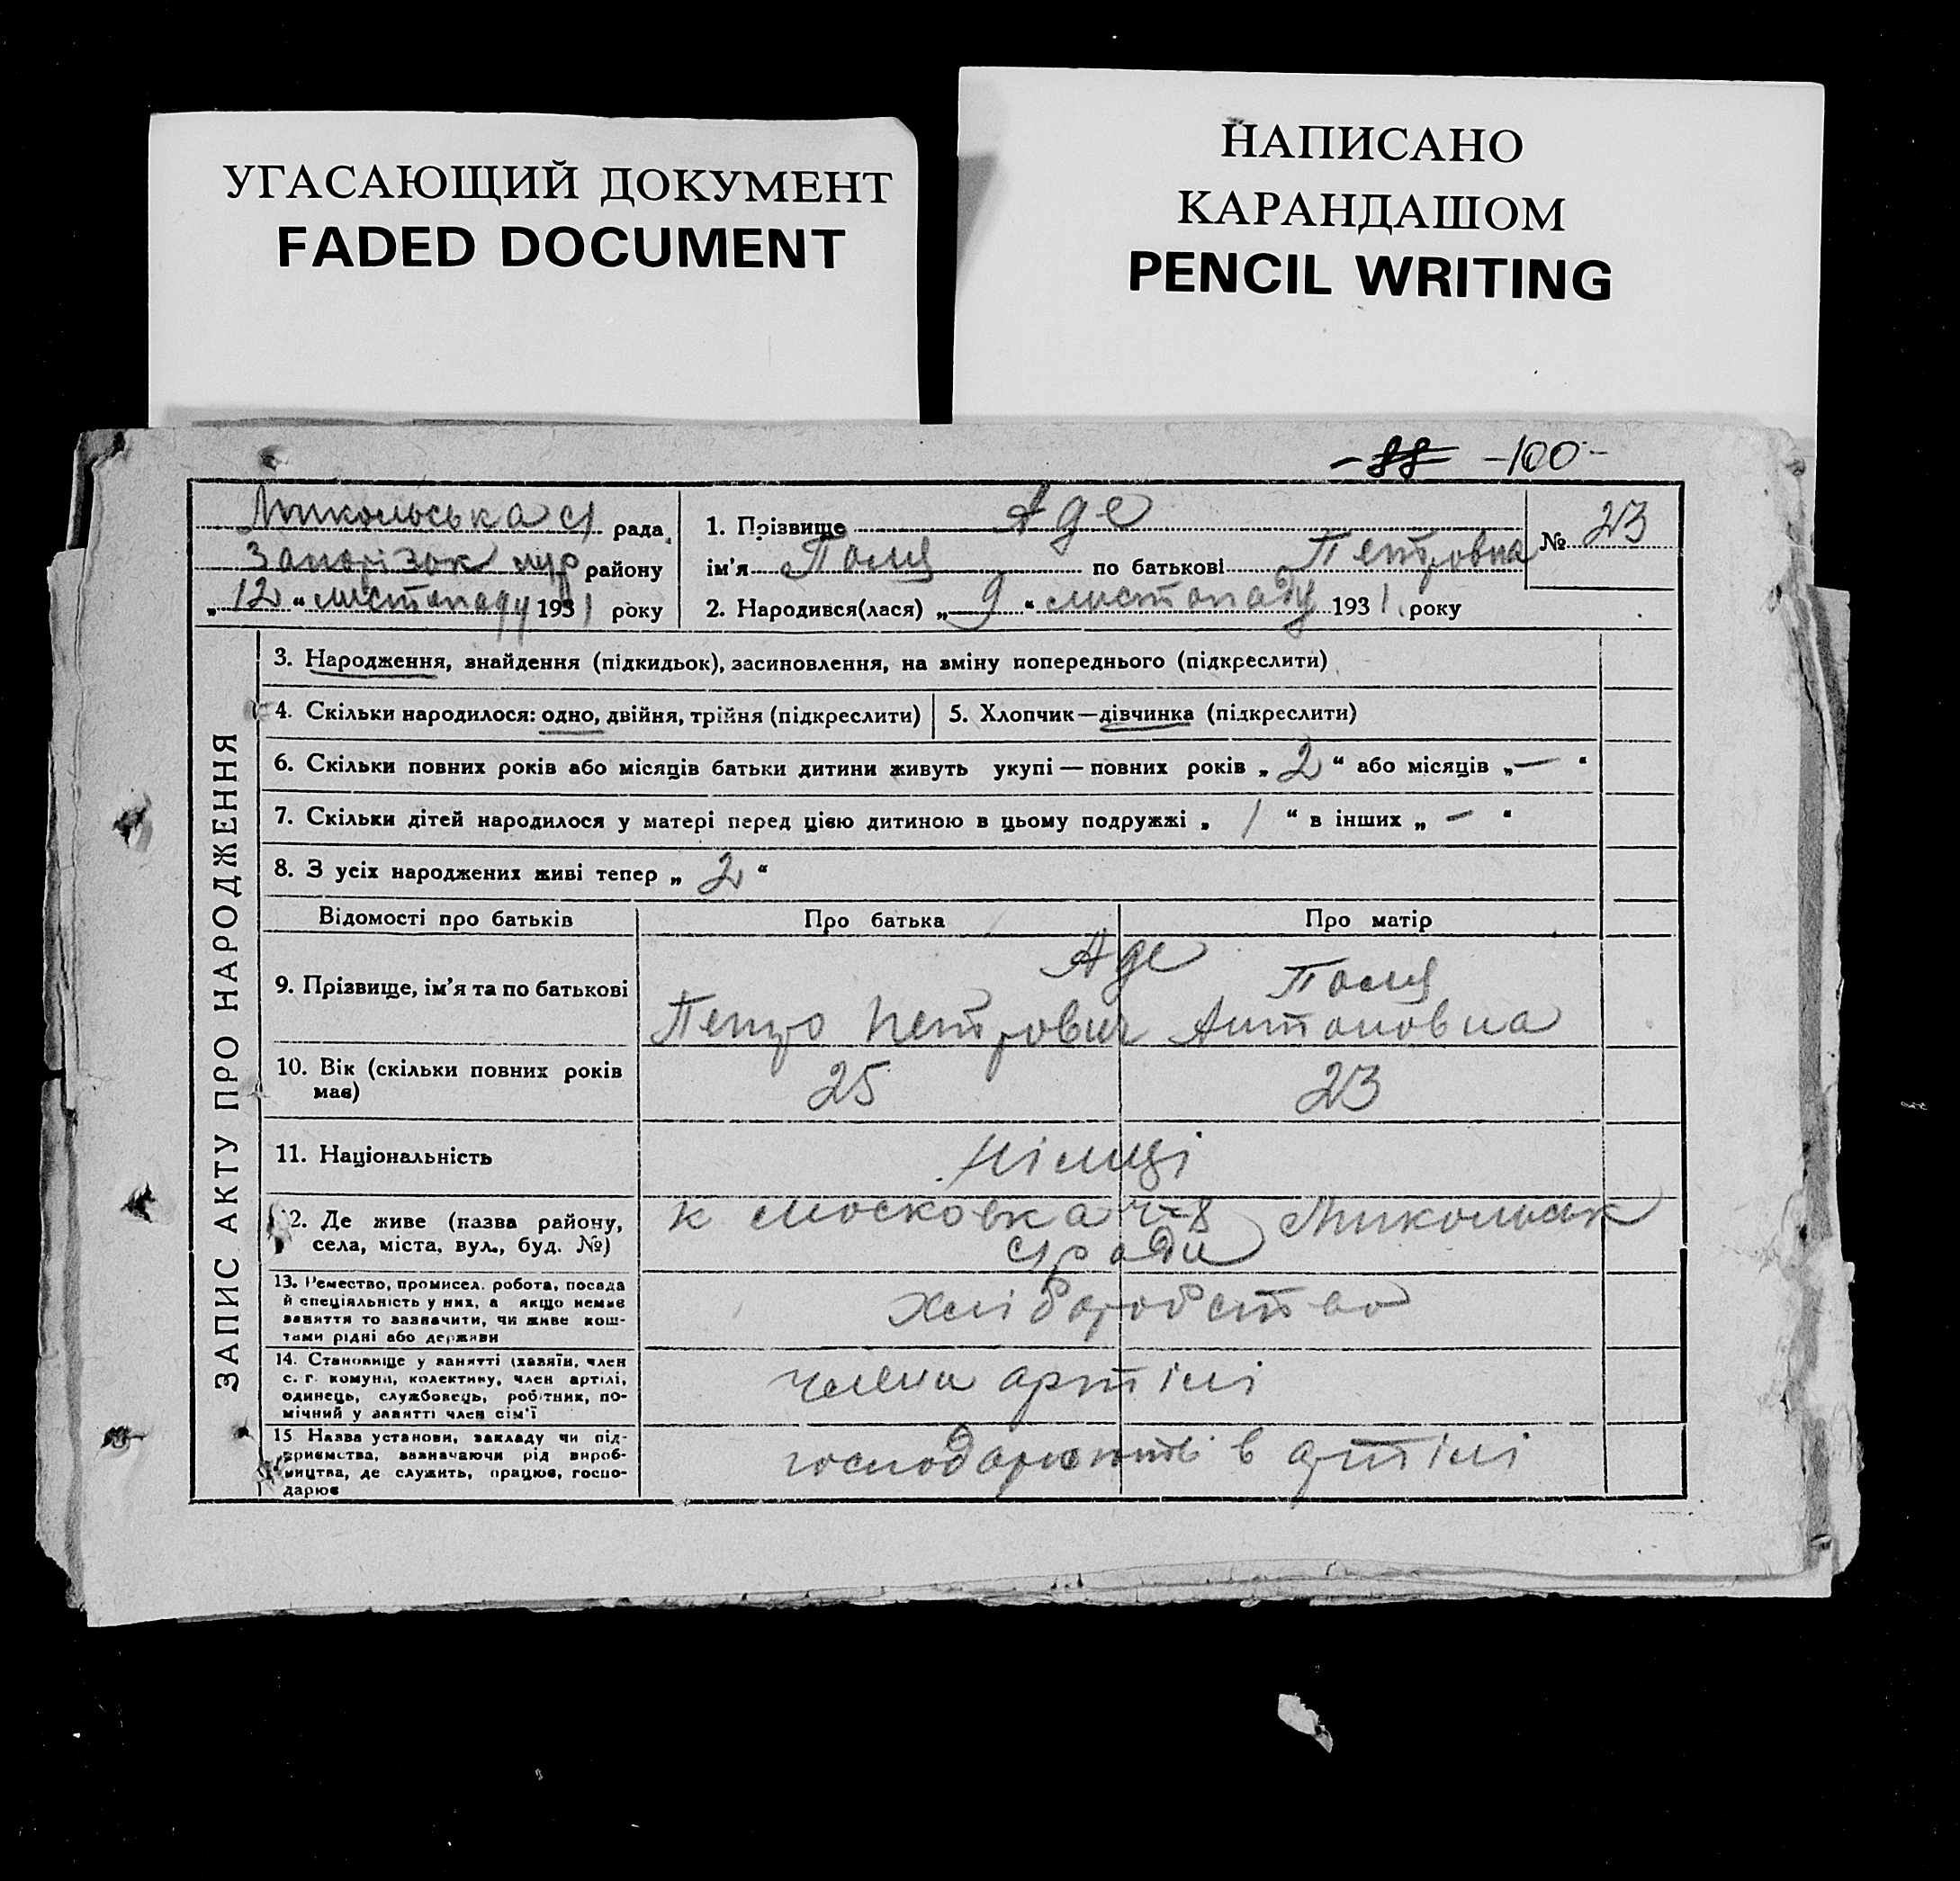 УГАСАЮЩИЙ ДОКУМЕНТ
FADED DOCUMENT
НАПИСАНО
КАРАНДАШОМ
PENCIL WRITING
-88- -100-
Микольська с/ рада
Запорізок району
„ 12 “ листопаду 1931 року
1. Прізвище Аде
ім'я Поля по батькові Петровна
№ 23
2. Народився(лася) „ 9 “ листопаду 1931. року
ЗАПИС АКТУ ПРО НАРОДЖЕННЯ
3. Народження, знайдення (підкидьок), засиновлення, на зміну попереднього (підкреслити)
4. Скільки народилося: одно, двійня, трійня (підкреслити) 5. Хлопчик—дівчинка (підкреслити)
6. Скільки повних років або місяців батьки дитини живуть укупі — повних років „ 2 “ або місяців „ — “
7. Скільки дітей народилося у матері перед цією дитиною в цьому подружжі „ 1 “ в інших „ — “
8. З усіх народжених живі тепер „ 2 “
Відомості про батьків Про батька Про матір
9. Прізвище, ім'я та по батькові
Аде
Поля
Петро Петрович Антоновна
10. Вік (скільки повних років
має)
25 23
11. Національність
німці
12. Де живе (назва району,
села, міста, вул., буд. №)
к Московка ч-8 Микольськ
с/ради
13. Ремество, промисел, робота, посада
й спеціяльність у них, а якщо немає
заняття то зазначити, чи живе кош-
тами рідні або держави
хліборобство
14. Становище у занятті (хазяїн, член
с. г. комуни, колективу, член артілі,
одинець, службовець, робітник, по-
мічний у занятті член сім'ї
члени артілі
15. Назва установи, закладу чи під-
приємства, зазначаючи рід вироб-
ництва, де служить, працює, госпо-
дарює
господарюють в артілі